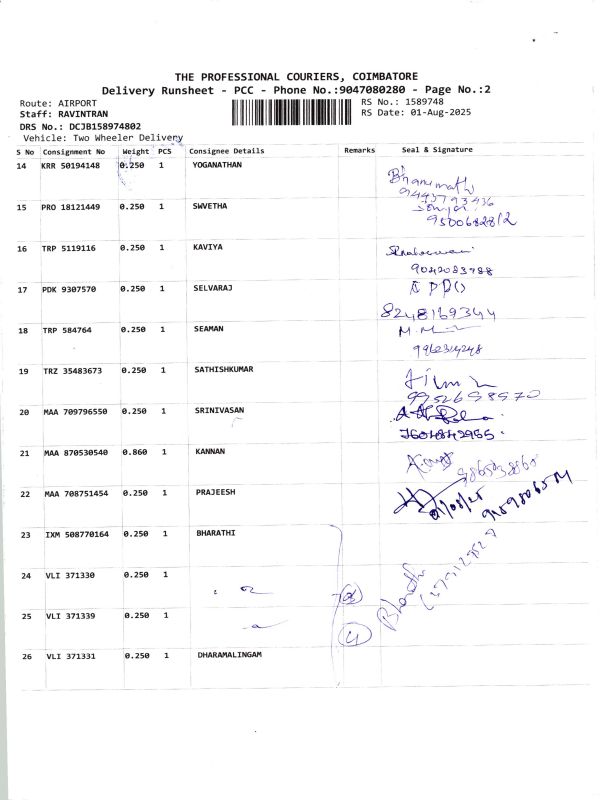 THE PROFESSIONAL COURIERS, COIMBATORE
Delivery Runsheet - PCC - Phone No.:9047080280 - Page No.:2
Route: AIRPORT RS No.: 1589748
Staff: RAVINTRAN RS Date: 01-Aug-2025
DRS No.: DCJB158974802
Vehicle: Two Wheeler Delivery
S No Consignment No Weight PCS Consignee Details Remarks Seal & Signature
14 KRR 50194148 0.250 1 YOGANATHAN
Bhanumathi
9445793436
15 PRO 18121449 0.250 1 SWVETHA
9500682812
16 TRP 5119116 0.250 1 KAVIYA
9042083788
17 PDK 9307570 0.250 1 SELVARAJ
8248169344
18 TRP 584764 0.250 1 SEAMAN
19 TRZ 35483673 0.250 1 SATHISHKUMAR
9952698970
20 MAA 709796550 0.250 1 SRINIVASAN
7604842955
21 MAA 870530540 0.860 1 KANNAN
22 MAA 708751454 0.250 1 PRAJEESH
01/08/25
23 IXM 508770164 0.250 1 BHARATHI
24 VLI 371330 0.250 1
Bharathi
25 VLI 371339 0.250 1
4
26 VLI 371331 0.250 1 DHARAMALINGAM